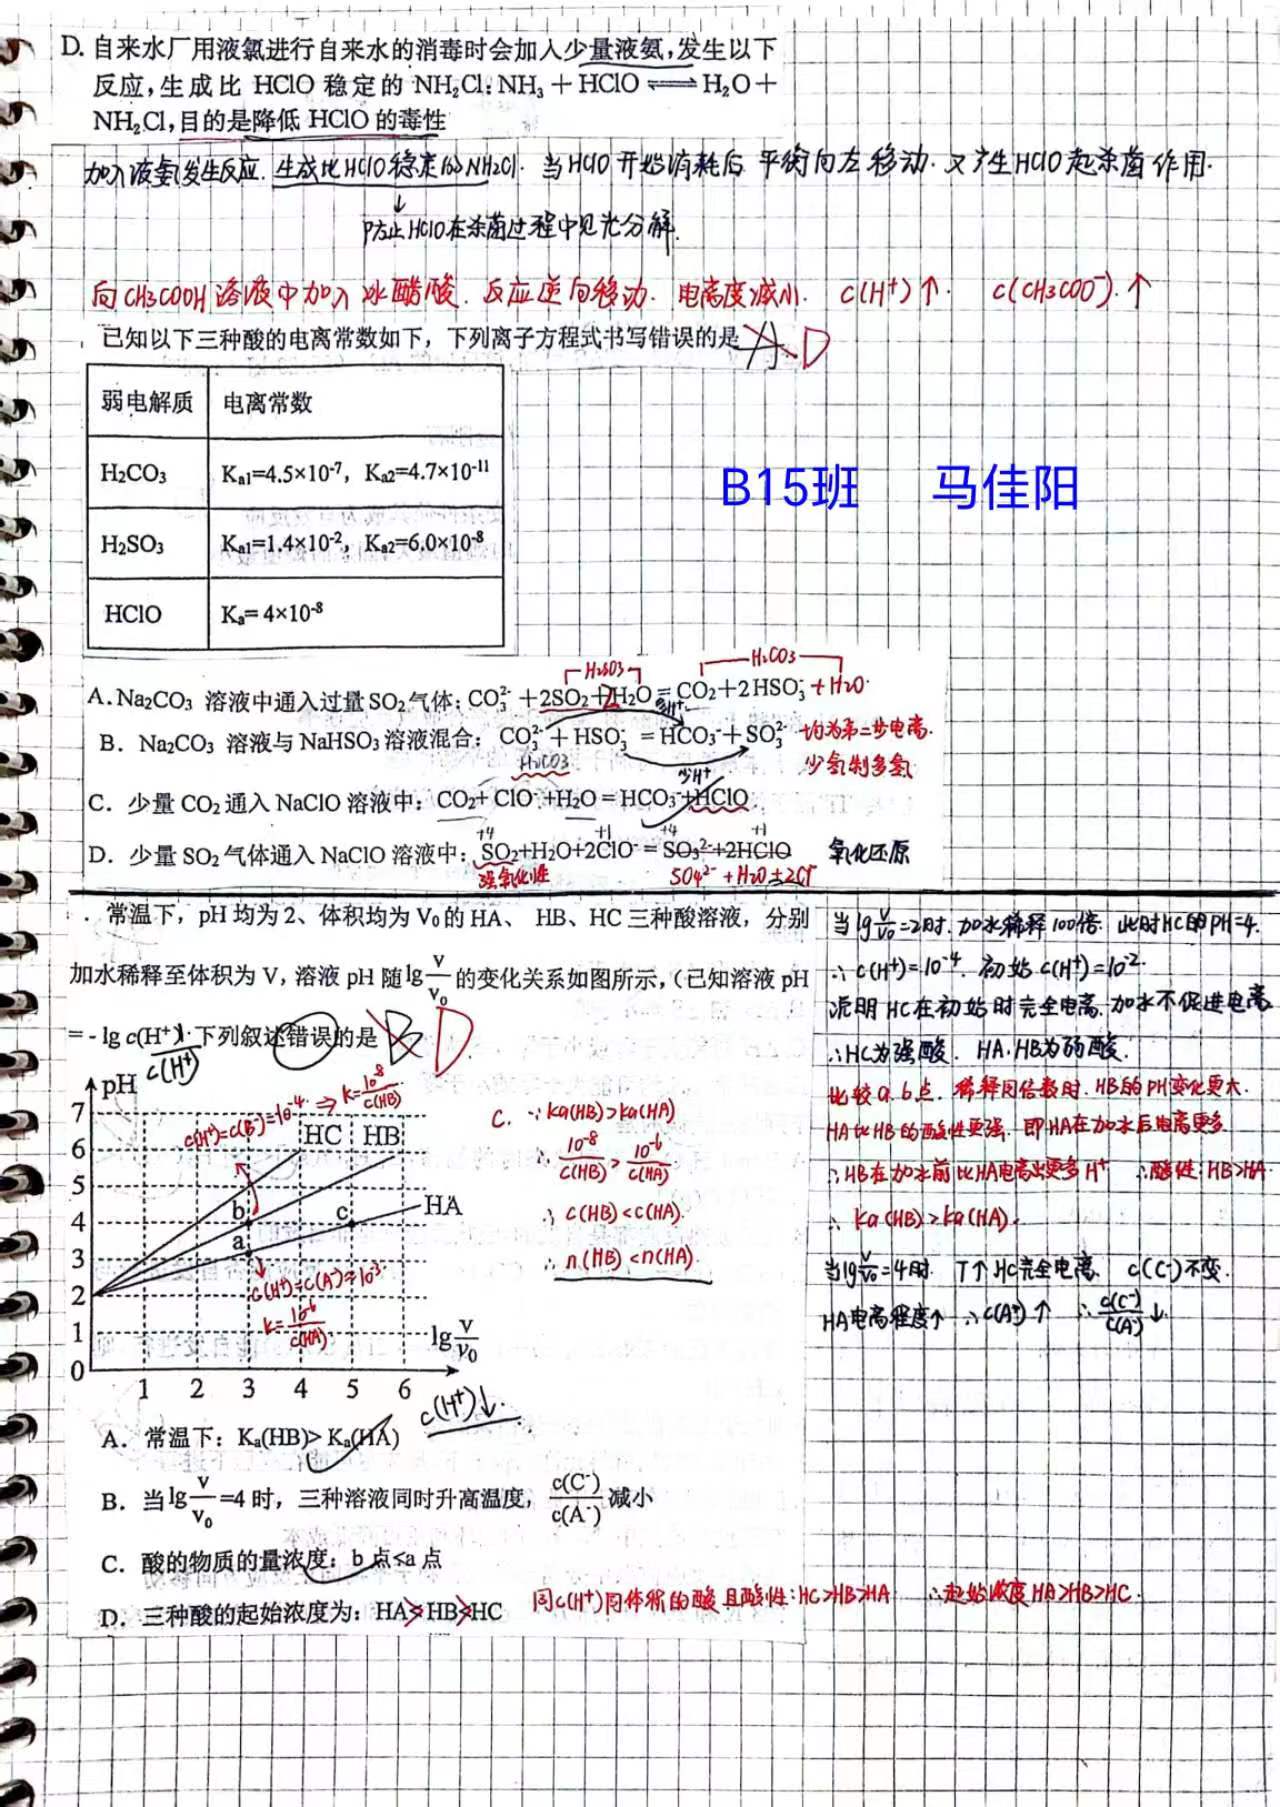 D. 自来水厂用液氯进行自来水的消毒时会加入少量液氨,发生以下
反应,生成比 HClO 稳定的 NH₂Cl:NH₃+HClO⇌H₂O+
NH₂Cl,目的是降低 HClO 的毒性
加入液氨发生反应.生成比HClO稳定的NH₂Cl.当HClO开始消耗后 平衡向左移动.又产生HClO起杀菌作用.
↓
防止HClO在杀菌过程中见光分解.
向CH3COOH溶液中加入冰醋酸.反应逆向移动.电离度减小. c(H⁺)↑. c(CH3COO⁻).↑
已知以下三种酸的电离常数如下，下列离子方程式书写错误的是 A D
弱电解质 电离常数
H₂CO₃ Kₐ₁=4.5×10⁻⁷，Kₐ₂=4.7×10⁻¹¹
B15班 马佳阳
H₂SO₃ Kₐ₁=1.4×10⁻²，Kₐ₂=6.0×10⁻⁸
HClO Kₐ= 4×10⁻⁸
H₂SO3 H₂CO3
A.Na₂CO₃ 溶液中通入过量SO₂气体：CO₃²⁻+2SO₂+2H₂O=CO₂+2HSO₃⁻+H₂O.
B．Na₂CO₃ 溶液与NaHSO₃溶液混合：CO₃²⁻+HSO₃⁻=HCO₃⁻+SO₃²⁻ 均为第二步电离.
H₂CO3 少H⁺ 少氢制多氢
C．少量CO₂通入NaClO溶液中：CO₂+ClO⁻+H₂O=HCO₃⁻+HClO
+4 +1 +4 +1
D．少量SO₂气体通入NaClO溶液中：SO₂+H₂O+2ClO⁻=SO₃²⁻+2HClO 氧化还原
强氧化性 SO4²⁻+H₂O+2Cl⁻
．常温下，pH均为2、体积均为V₀的HA、 HB、HC三种酸溶液，分别
加水稀释至体积为V，溶液pH随lg V/V₀ 的变化关系如图所示，（已知溶液pH
= - lg c(H⁺)）.下列叙述错误的是 B D
c(H⁺)
当lg V/V₀=2时.加水稀释100倍.此时HC的PH=4.
∴c(H⁺)=10⁻⁴. 初始c(H⁺)=10⁻².
说明HC在初始时完全电离.加水不促进电离
∴HC为强酸. HA.HB为弱酸.
比较a.b点.稀释同倍数时.HB的PH变化更大.
HA比HB的酸性更强.即HA在加水后电离更多.
∴HB在加水前比HA电离出更多H⁺ ∴酸性:HB>HA
∴ Ka(HB)>Ka(HA).
当lg V/V₀=4时. T↑ HC完全电离. c(C⁻)不变.
HA电离程度↑ ∴c(A⁻)↑ ∴c(C⁻)/c(A⁻)↓.
pH
7
6
5
4
3
2
1
0
1 2 3 4 5 6
HC HB
HA
b c
a
lg V/V₀
c(H⁺)=c(B⁻)=10⁻⁴ ⇒ K=10⁻⁸/c(HB)
c(H⁺)=c(A⁻)=10⁻³
K=10⁻⁶/c(HA)
C. ∵Ka(HB)>Ka(HA)
∴ 10⁻⁸/c(HB) > 10⁻⁶/c(HA)
∴ c(HB)<c(HA).
∴ n(HB)<n(HA).
c(H⁺)↓.
A．常温下：Kₐ(HB)> Kₐ(HA)
B．当lg V/V₀=4时，三种溶液同时升高温度，c(C⁻)/c(A⁻)减小
C．酸的物质的量浓度：b点<a点
D．三种酸的起始浓度为：HA>HB>HC 同c(H⁺)同体积的酸且酸性:HC>HB>HA ∴起始浓度HA>HB>HC.